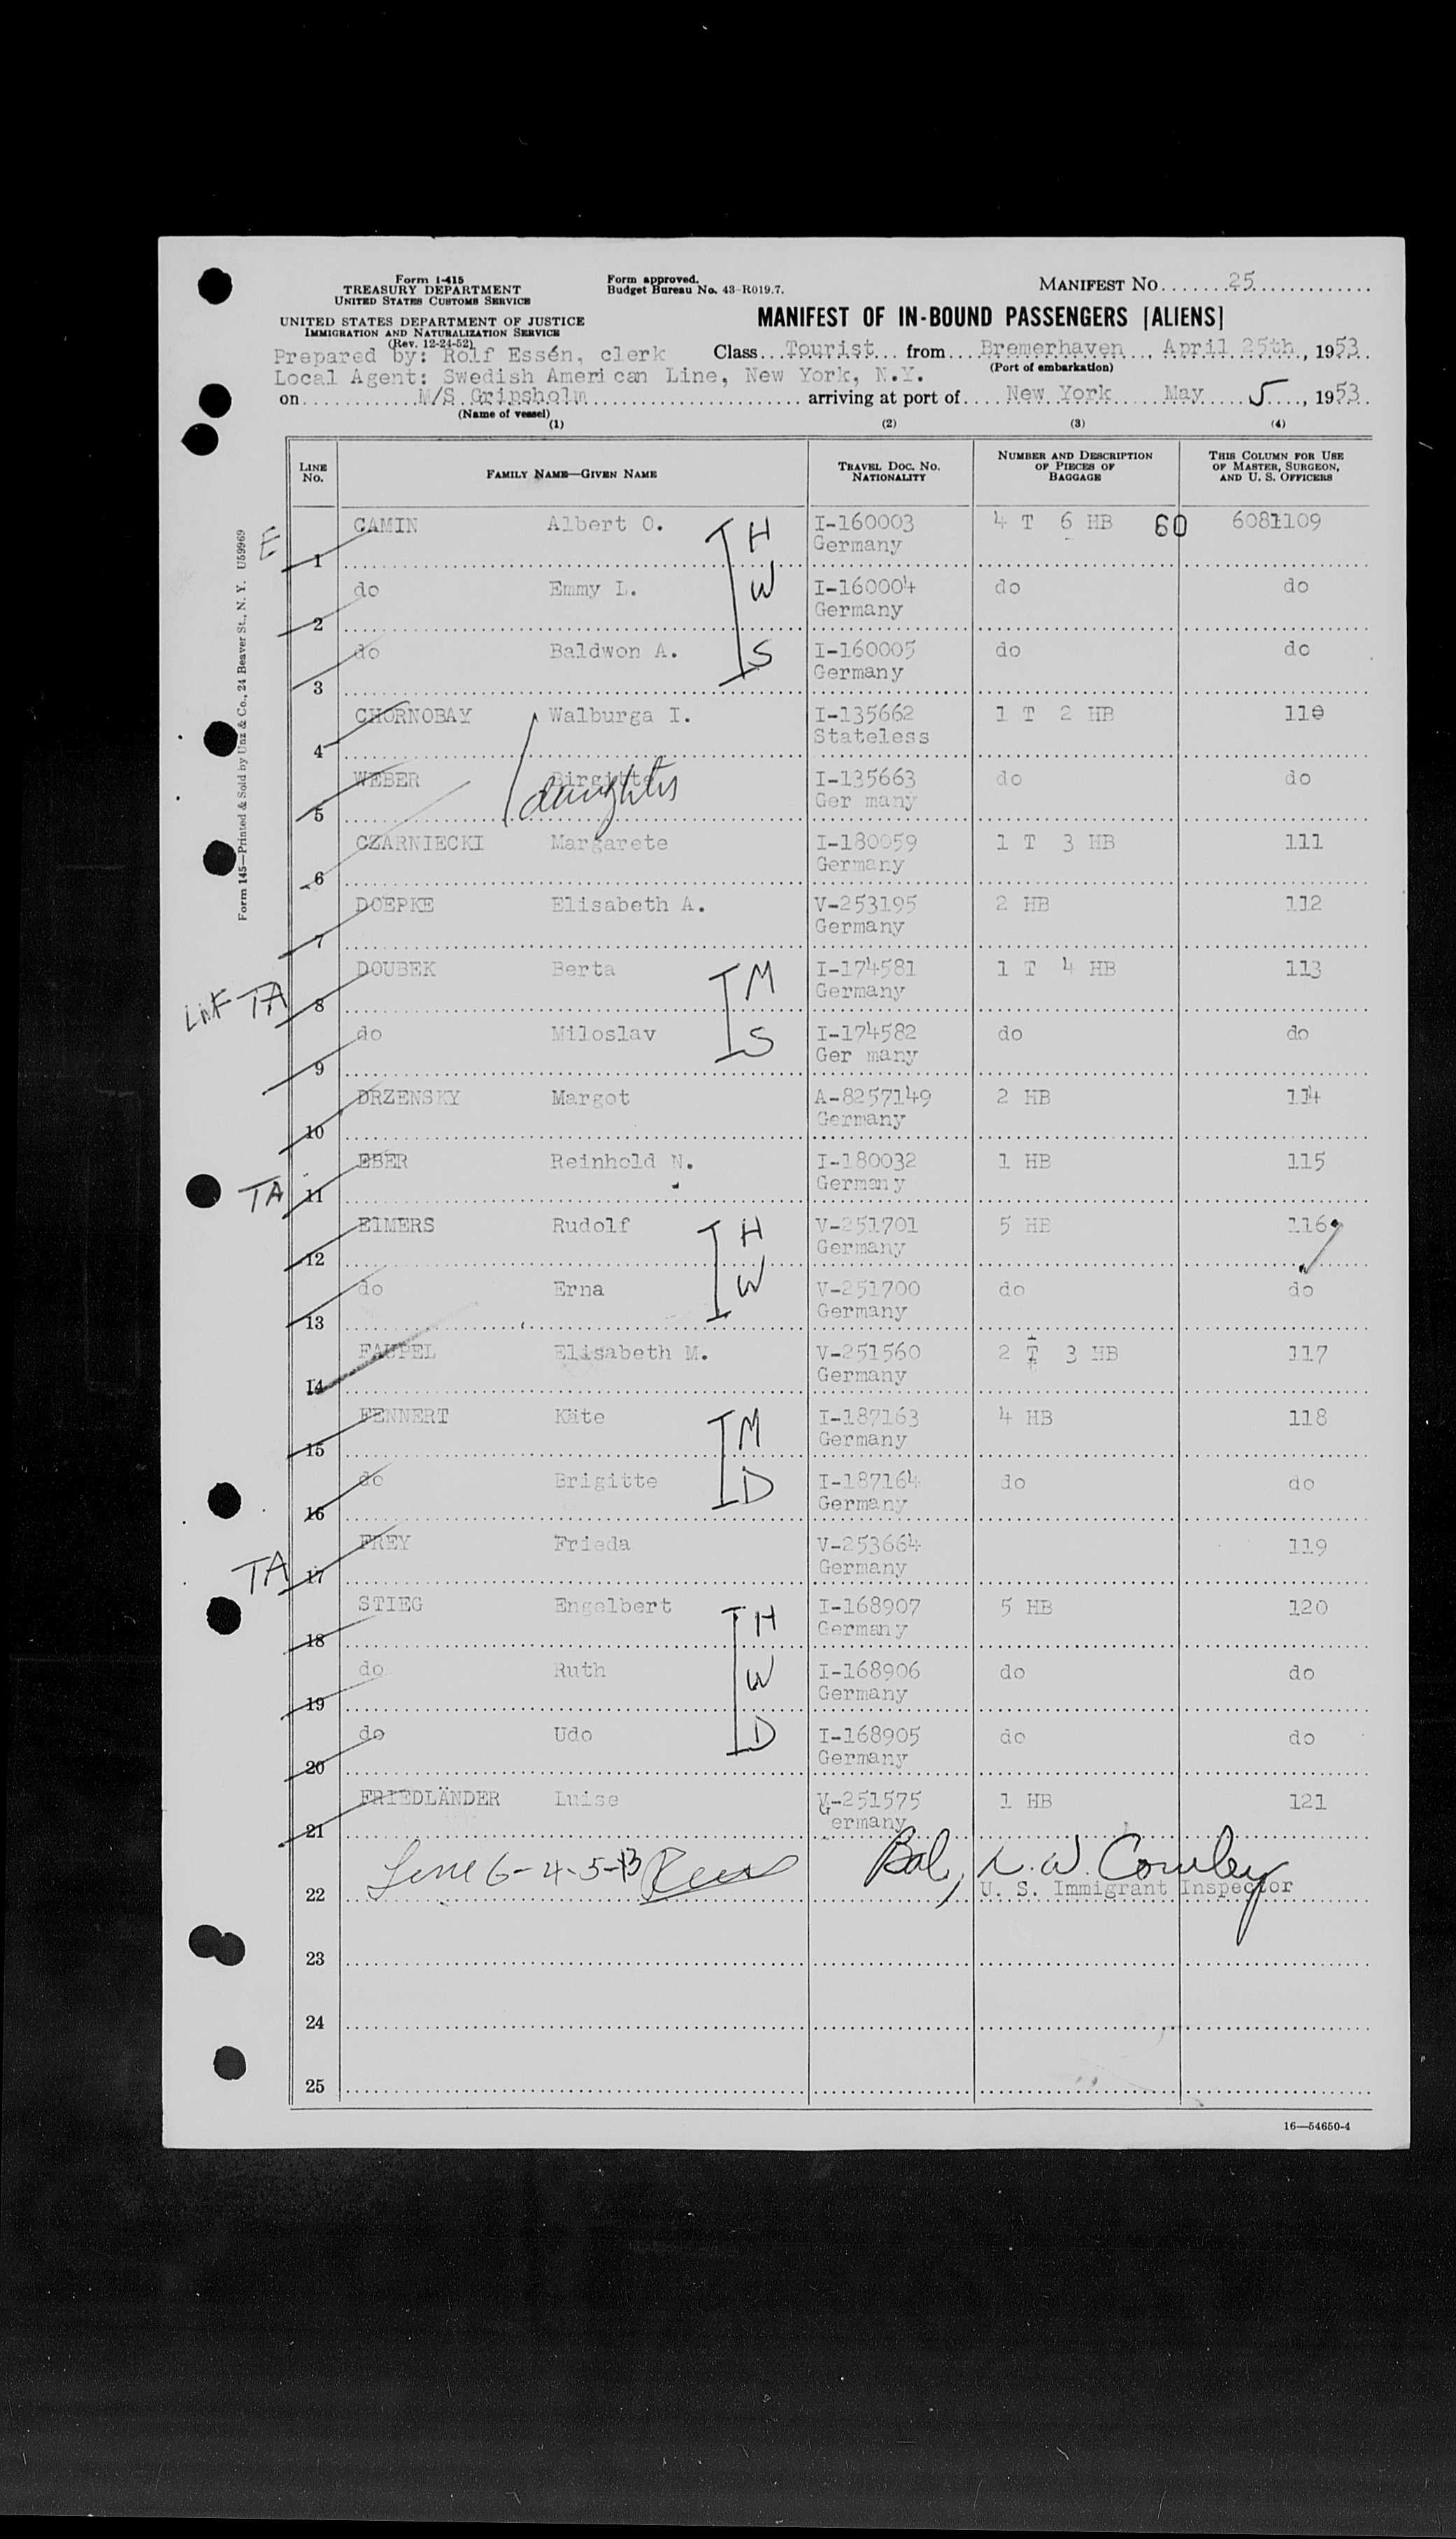 Form I-415
TREASURY DEPARTMENT
UNITED STATES CUSTOMS SERVICE
UNITED STATES DEPARTMENT OF JUSTICE
IMMIGRATION AND NATURALIZATION SERVICE
(Rev. 12-24-52)
Form approved.
Budget Bureau No. 43-R019.7.
MANIFEST NO. 25
MANIFEST OF IN-BOUND PASSENGERS [ALIENS]
Prepared by: Rolf Essén, clerk
Class Tourist from Bremerhaven, April 25th, 1953
(Port of embarkation)
Local Agent: Swedish American Line, New York, N.Y.
on M/S Gripsholm arriving at port of New York May 5, 1953
(Name of vessel)
(1) (2) (3) (4)
LINE NO. FAMILY NAME—GIVEN NAME TRAVEL DOC. NO. NATIONALITY NUMBER AND DESCRIPTION OF PIECES OF BAGGAGE THIS COLUMN FOR USE OF MASTER, SURGEON, AND U. S. OFFICERS
E 1 CAMIN Albert O. H I-160003 Germany 4 T 6 HB 60 6081109
2 do Emmy L. W I-160004 Germany do do
3 do Baldwon A. S I-160005 Germany do do
4 CHORNOBAY Walburga I. I-135662 Stateless 1 T 2 HB 110
5 WEBER Birgitta daughter I-135663 Ger many do do
6 CZARNIECKI Margarete I-180059 Germany 1 T 3 HB 111
7 DOEPKE Elisabeth A. V-253195 Germany 2 HB 112
TA 8 DOUBEK Berta M I-174581 Germany 1 T 4 HB 113
9 do Miloslav S I-174582 Ger many do do
10 DRZENSKY Margot A-8257149 Germany 2 HB 114
TA 11 EBER Reinhold N. I-180032 Germany 1 HB 115
12 ElMERS Rudolf H V-251701 Germany 5 HB 116
13 do Erna W V-251700 Germany do do
14 FAUPEL Elisabeth M. V-251560 Germany 2 T 3 HB 117
15 FENNERT Käte M I-187163 Germany 4 HB 118
16 do Brigitte D I-187164 Germany do do
TA 17 FREY Frieda V-253664 Germany 119
18 STIEG Engelbert H I-168907 Germany 5 HB 120
19 do Ruth W I-168906 Germany do do
20 do Udo D I-168905 Germany do do
21 FRIEDLÄNDER Luise V-251575 Germany 1 HB 121
22 Line 6-4-5-
Bal, L. W. Cowley
U. S. Immigrant Inspector
23
24
25
16—54650-4
Form 145—Printed & Sold by Unz & Co., 24 Beaver St., N. Y. U59969